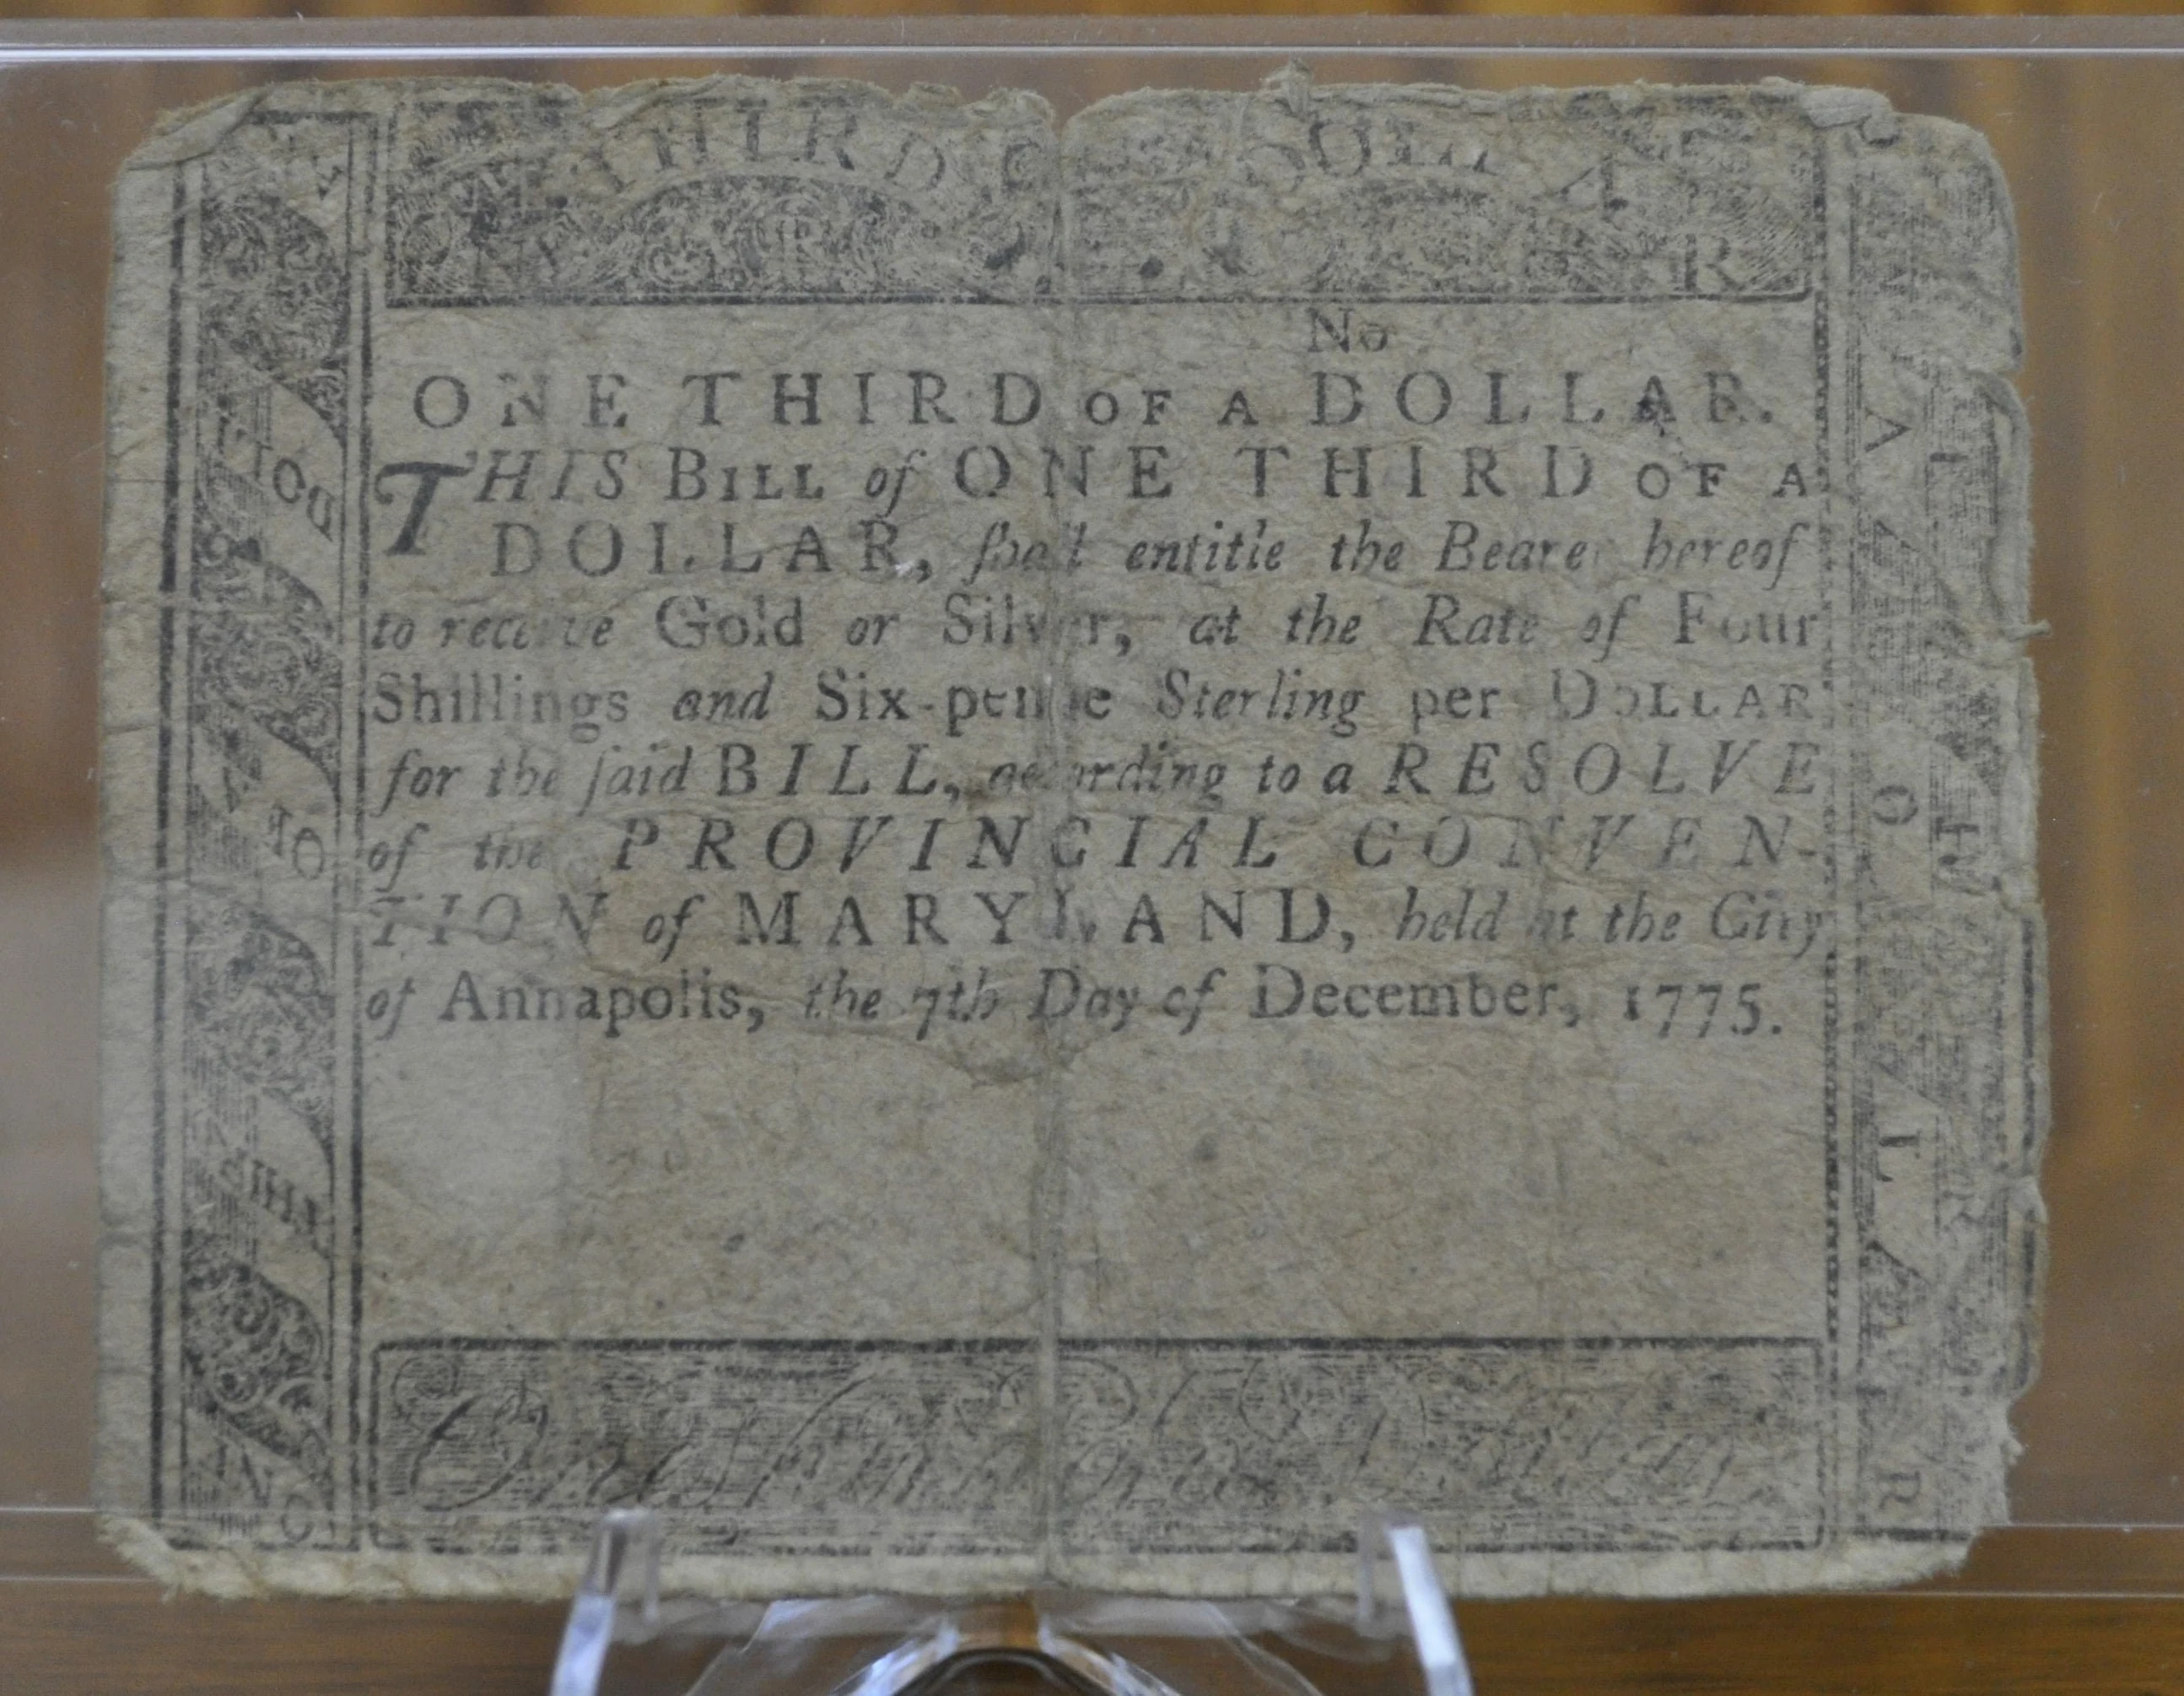 THIRD
DOLLAR
No
ONE THIRD OF A DOLLAR.
THIS BILL of ONE THIRD OF A
DOLLAR, ſhall entitle the Bearer hereof
to receive Gold or Silver, at the Rate of Four
Shillings and Six-pence Sterling per DOLLAR
for the ſaid BILL, according to a RESOLVE
of the PROVINCIAL CONVEN-
TION of MARYLAND, held at the City
of Annapolis, the 7th Day of December, 1775.
DOLL
OF A
THIR